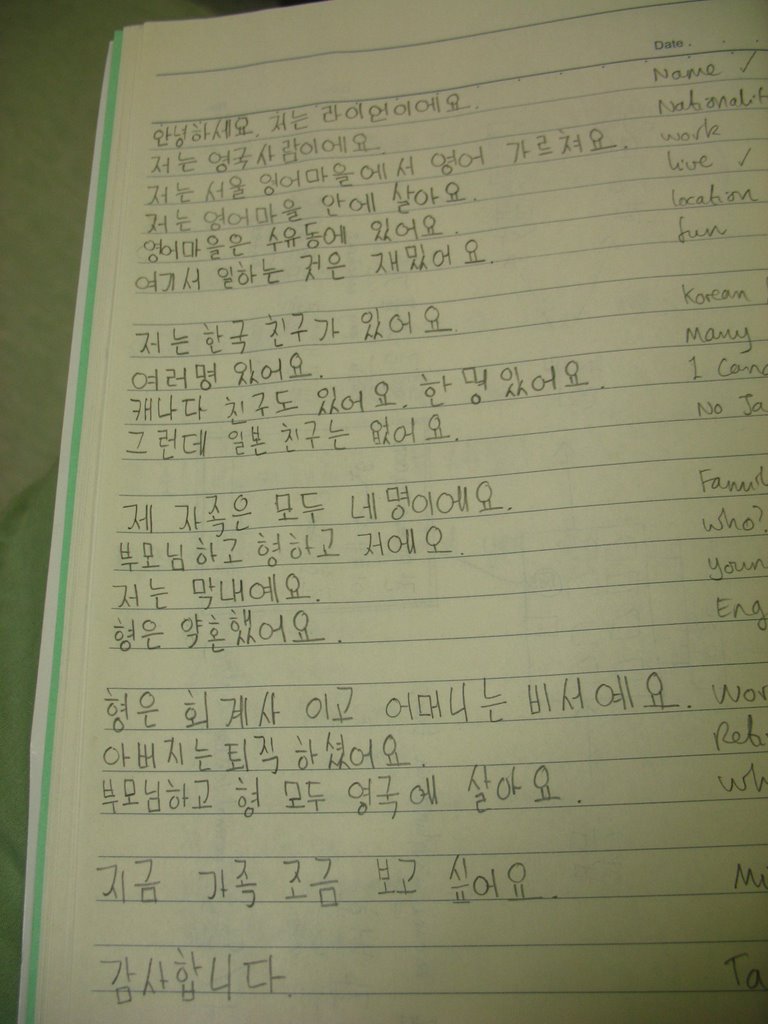 Date .
Name ✓
안녕하세요. 저는 라이언이에요.
저는 영국사람이에요.
저는 서울 영어마을에서 영어 가르쳐요. work
저는 영어마을 안에 살아요. live ✓
영어마을은 수유동에 있어요. location
여기서 일하는 것은 재밌어요. fun
저는 한국 친구가 있어요. Korean
여러명 있어요. Many
캐나다 친구도 있어요. 한 명 있어요. 1
그런데 일본 친구는 없어요. No
제 가족은 모두 네명이에요.
부모님하고 형하고 저에요. who?
저는 막내예요.
형은 약혼했어요.
형은 회계사 이고 어머니는 비서예요.
아버지는 퇴직 하셨어요.
부모님하고 형 모두 영국에 살아요.
지금 가족 조금 보고 싶어요.
감사합니다.